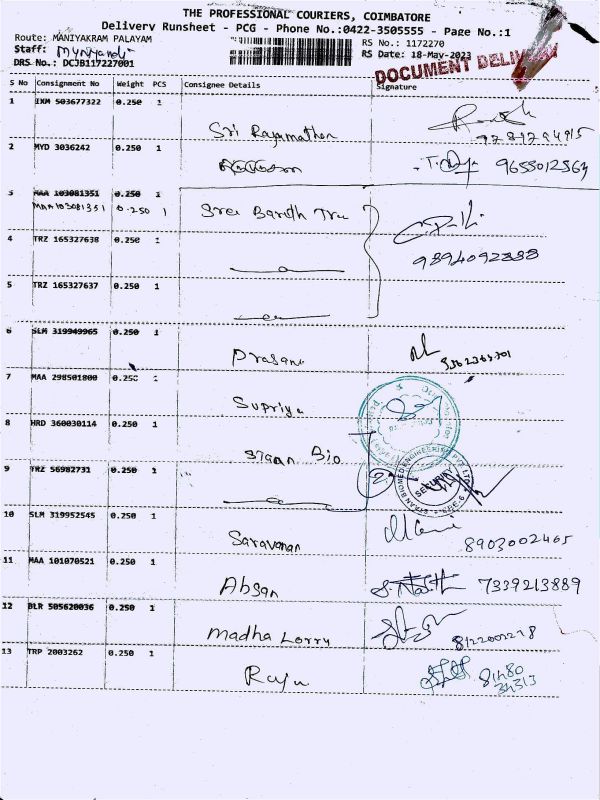 THE PROFESSIONAL COURIERS, COIMBATORE
Delivery Runsheet - PCG - Phone No.:0422-3505555 - Page No.:1
Route: MANIYAKRAM PALAYAM
RS No.: 1172270
Staff: Muniyandi
RS Date: 18-May-2023
DRS No.: DCJB117227001
DOCUMENT DELIVERY
S No Consignment No Weight PCS Consignee Details Signature
1 IXM 503677322 0.250 1
Sri Rajamathan
9787294915
2 MYD 3036242 0.250 1
9655012563
3 MAA 103081351 0.250 1
MAA 103081351 0.250 1 Sree Barath Tru
4 TRZ 165327638 0.250 1
9894092888
5 TRZ 165327637 0.250 1
6 SLM 319949965 0.250 1
Prasanu
7 MAA 298501800 0.250 1
Supriya
8 HRD 360030114 0.250 1
Staan Bio
9 TRZ 56982731 0.250 1
STAAN BIOMED ENGINEERING PVT LTD
SECURITY
10 SLM 319952545 0.250 1
Saravanan 8903002465
11 MAA 101070521 0.250 1
Absan 7339213889
12 BLR 505620036 0.250 1
Madha Lorry
13 TRP 2003262 0.250 1
Raju